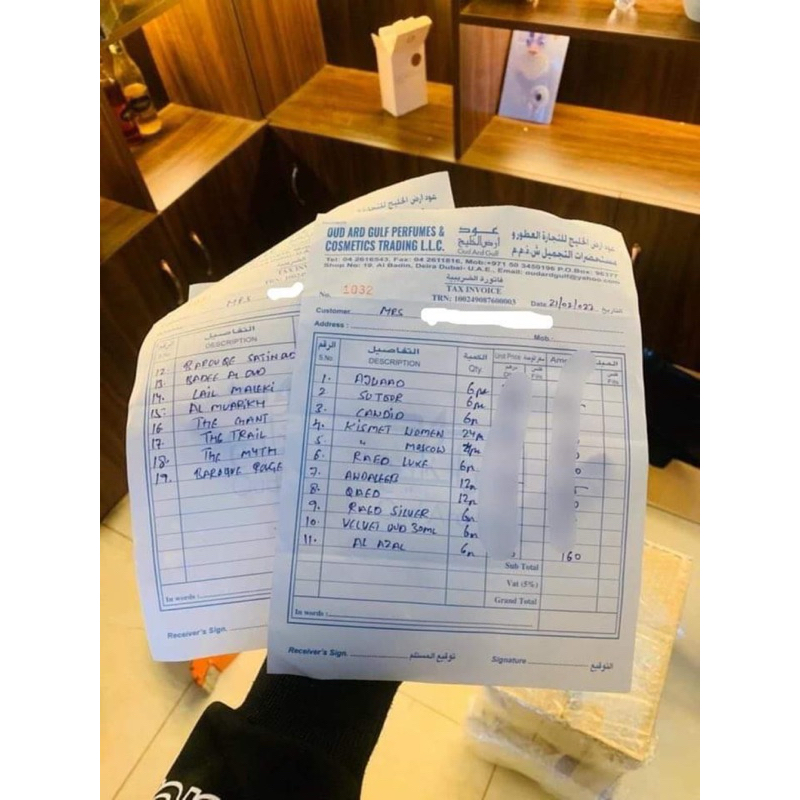 عود أرض الخليج للتجارة العطور و
مستحضرات التجميل ش.ذ.م.م
عـــود
أرض الخليج
Oud And Gulf
OUD ARD GULF PERFUMES &
COSMETICS TRADING L.L.C.
Tel: 04 2616543, Fax: 04 2611816, Mob:+971 50 3459196 P.O.Box: 96177
Shop No: 19, Al Badin, Deira Dubai: U.A.E., Email: oudardgulf@yahoo.com
فاتورة الضريبية
TAX INVOICE
TRN: 100249087600003
No. 1032
Date 21/02/022 التاريخ
Customer MRS
Address : Mob.
الرقم S.No التفاصيل DESCRIPTION الكمية Qty. Unit Price درهم فلس Amo فلس Fils.
1. AJWAAD 6pc
2 SUTOOR 6pc
3. CANDID 6pc
4. KISMET WOMEN 24p
5. " MOSCOW
6. RAED LUXE 6pc
7. ANDALEEB 12p
8. QAED 12p
9. RAED SILVER 6pc
10. VELVET OUD 30ML 6pc
11. AL AZAL 6pc 160
Sub Total
Vat (5%)
Grand Total
In words :
Receiver's Sign. توقيع المستلم Signature التوقيع
عود أرض الخليج للتجا
TAX IN
TRN: 1002
MRS
الرقم S.No التفاصيل DESCRIPTION
12. BAROUQE SATIN OUD
13. BADEE AL OUD
14. LAIL MALEKI
15. AL MUARIKH
16 THE CHANT
17. THE TRAIL
18. THE MYTH
19. BAROUQE ROUGE
In words :
Receiver's Sign.